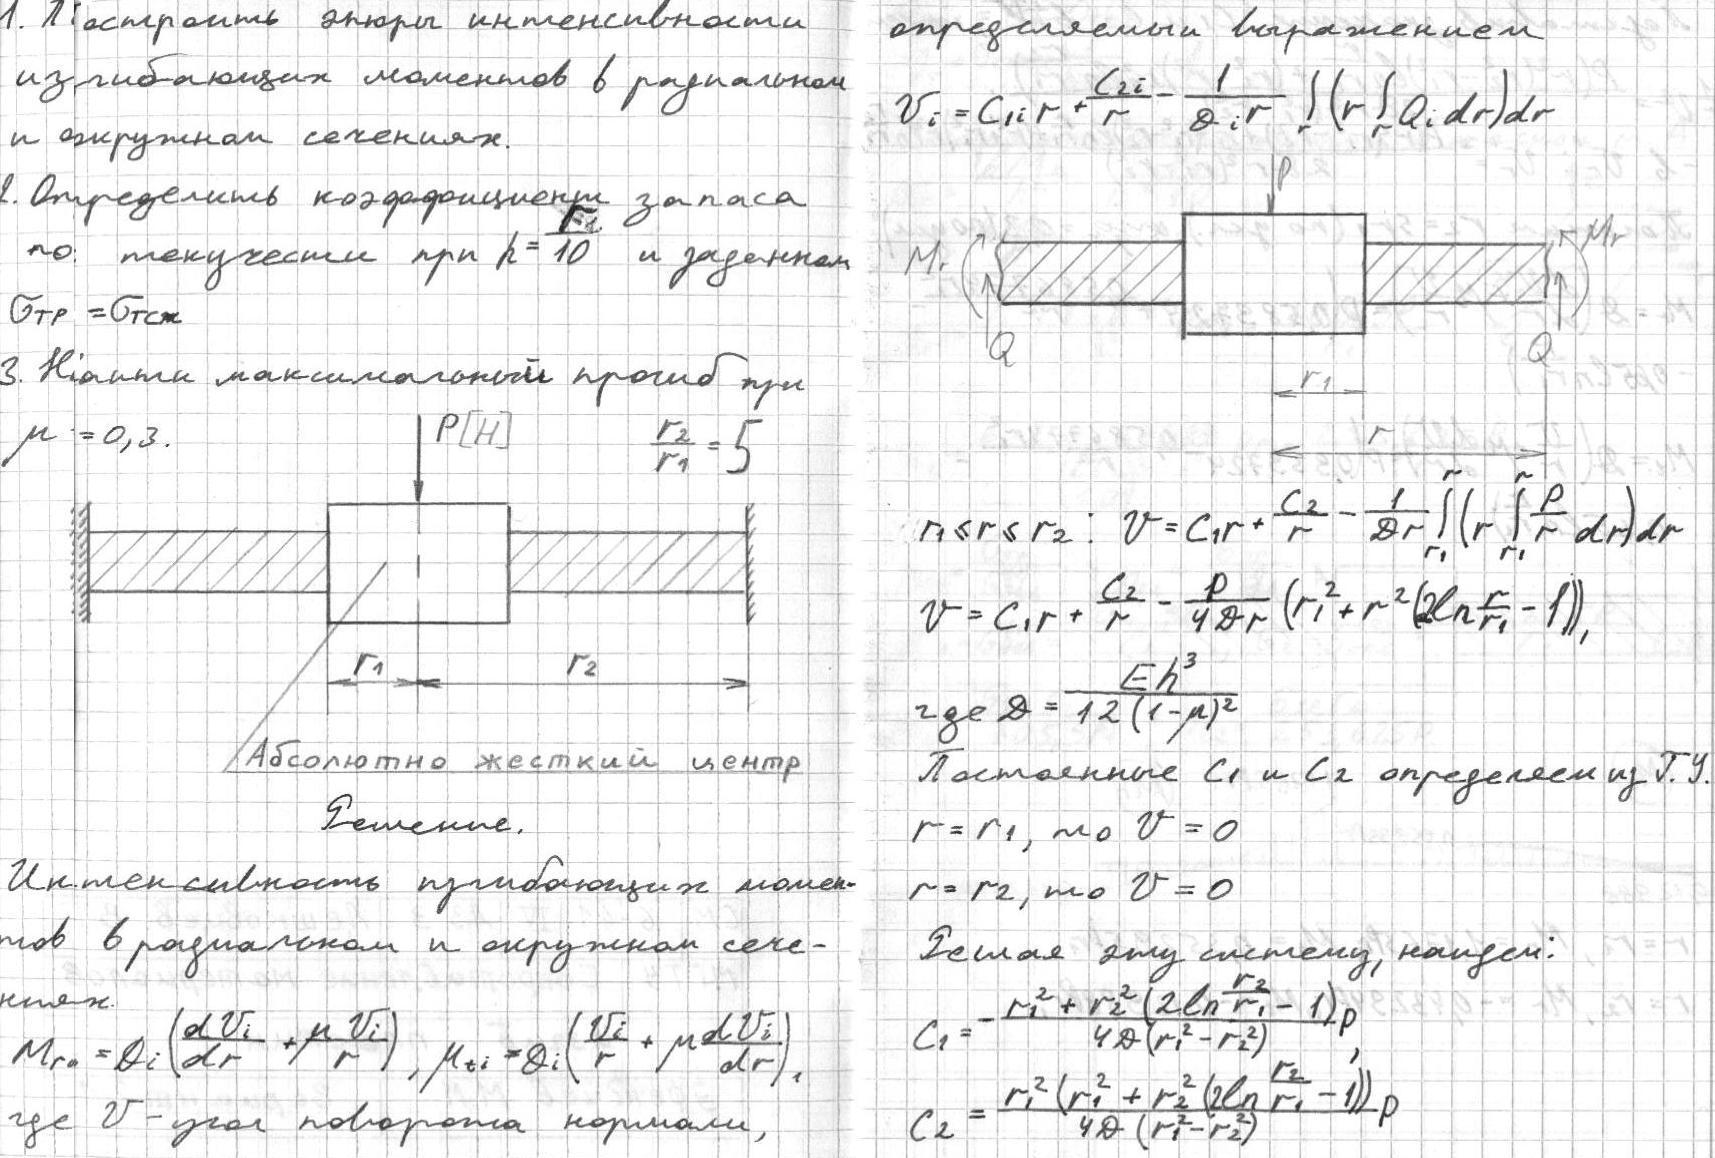 1. Построить эпюры интенсивности
изгибающих моментов в радиальном
и окружном сечениях.
2. Определить коэффициент запаса
по текучести при h = r₁/10 и заданном
σтр = σтсж
3. Найти максимальный прогиб при
μ = 0,3.
P[H]
r₂/r₁ = 5
r₁
r₂
Абсолютно жесткий центр
Решение.
Интенсивность изгибающих момен-
тов в радиальном и окружном сече-
ниях.
Mri = Di (dVi/dr + μ Vi/r), Mti = Di (Vi/r + μ dVi/dr),
где V - угол поворота нормали,
определяемый выражением
Vi = C₁i r + C₂i/r - 1/(Di r) ∫r (r ∫r Qi dr) dr
P
Mr
Mr
Q
Q
r₁
r
r₁ ≤ r ≤ r₂: V = C₁r + C₂/r - 1/(Dr) ∫r₁^r (r ∫r₁^r P/r dr) dr
V = C₁r + C₂/r - P/(4Dr) (r₁² + r² (2ln r/r₁ - 1)),
где D = Eh³/(12(1-μ)²)
Постоянные C₁ и C₂ определяем из Г.У.
r = r₁, то V = 0
r = r₂, то V = 0
Решая эту систему, найдем:
C₁ = - (r₁² + r₂² (2ln r₂/r₁ - 1))/(4D (r₁² - r₂²)) P,
C₂ = r₁² (r₁² + r₂² (2ln r₂/r₁ - 1))/(4D (r₁² - r₂²)) P